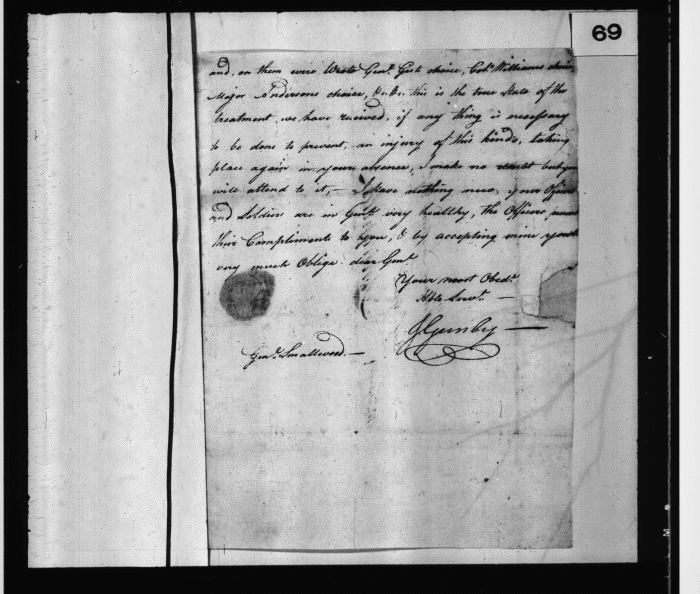 69
and, on them were Wrote Genl. Gist choice, Colo. Williams choice,
Major Andersons choice, &c. &c. this is the true State of the
treatment, we have recieved, if any thing is necessary
to be done to prevent, an injury of this kinds, taking
place again in your absence, I make no doubt but you
will attend to it, — I have nothing new, your Officers
and Soldiers are in Genl. very healthy, the Officers
their Compliments to you, & by accepting mine you'll
very much Oblige dear Genl.
Your most Obedt.
Hble Servt. —
J Gunby —
Genl. Smallwood. —
M